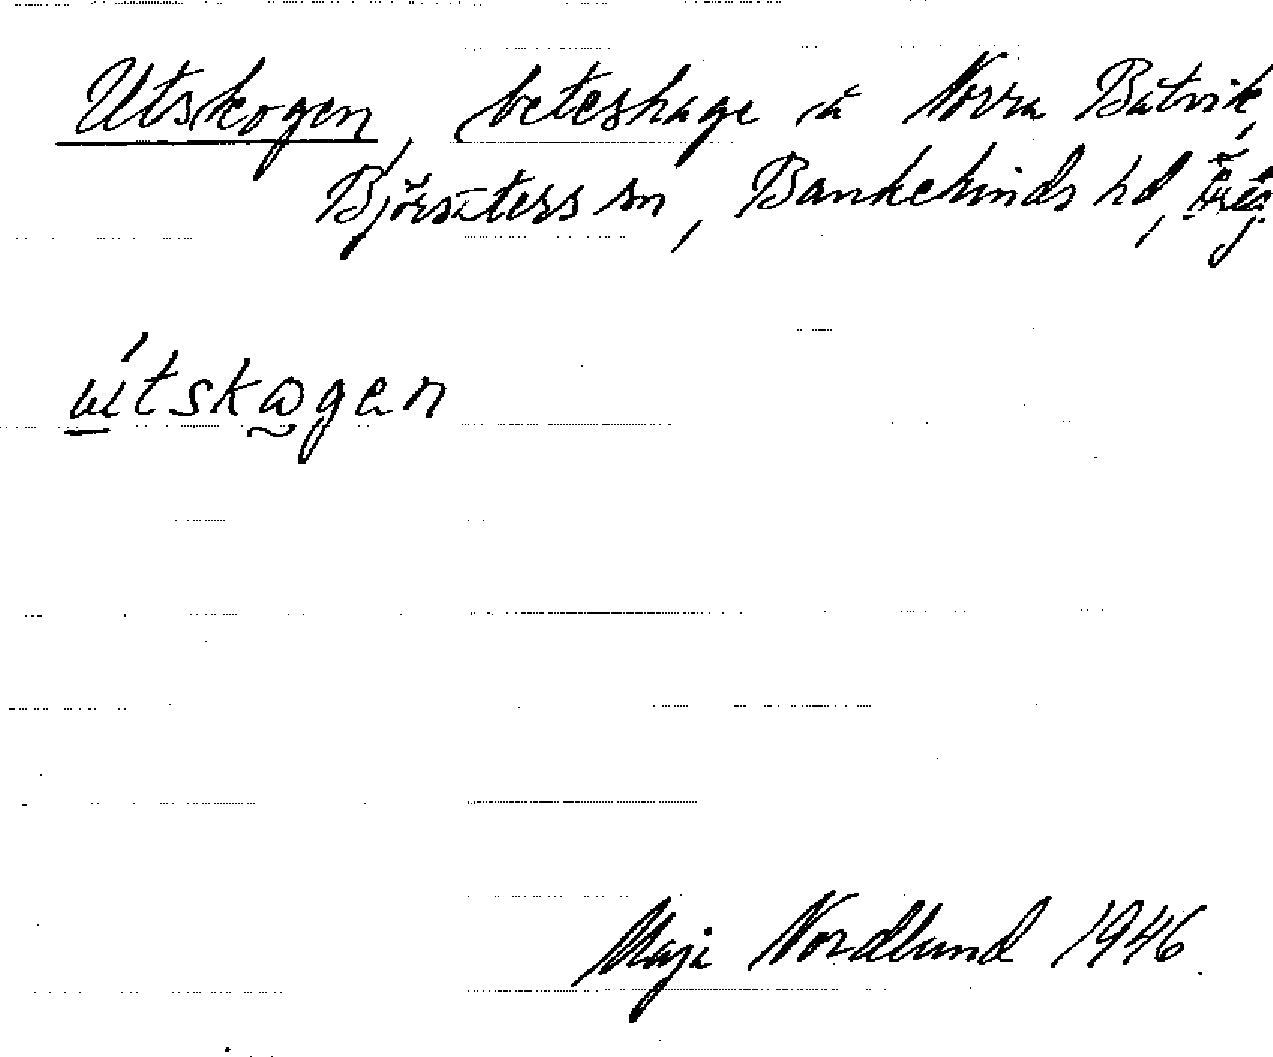 Utskogen, beteshage å Norra Båtvik,
Björsäters sn, Bankekinds hd, Ög.
útskωgen
Maja Nordlund 1946.